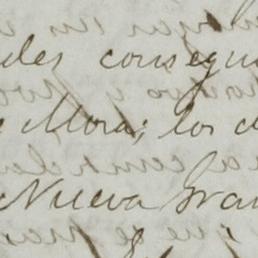 des consegu
e Mora; los d
Nueva Gra